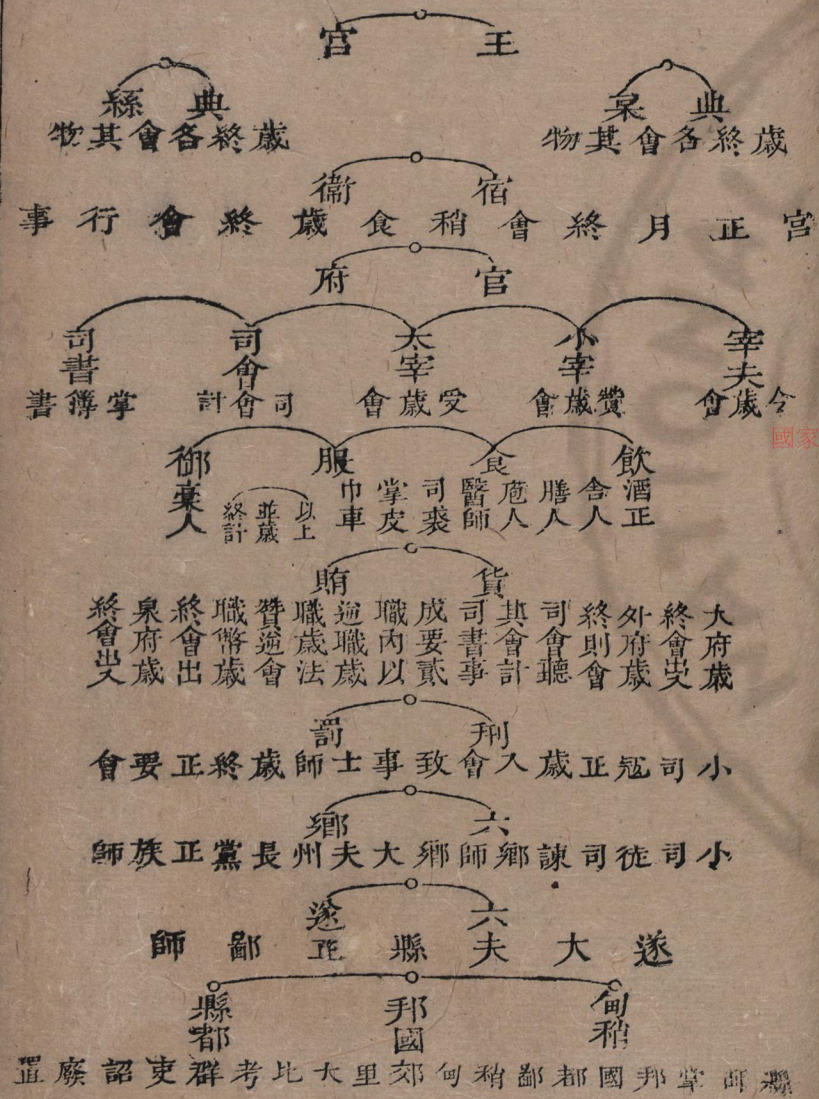 王宮
典枲 典絲
歲終各會其物 歲終各會其物
宿衞
宮正月終會稍食歲終會行事
官府
宰夫 小宰 太宰 司會 司書
令歲會 贊歲會 受歲會 司會計 掌簿書
飲食服御
酒正 舍人 膳人 庖人 醫師 司裘 掌皮 巾車 以上並歲終計 稾人
貨賄
大府歲
終會
外府歲
終則會
司會聽
其會計
司書事
成要貳
職內以
逆職歲
職歲法
贊逆會
職幣歲
終會出
泉府歲
終會出入
刑罰
小司寇正歲入會致事士師歲終正要會
六鄉
小司徒司諫鄉師鄉大夫州長黨正族師
六遂
遂大夫縣正鄙師
甸稍 邦國 縣都
縣師掌邦國都鄙稍甸郊里大比考群吏詔廢置
國家